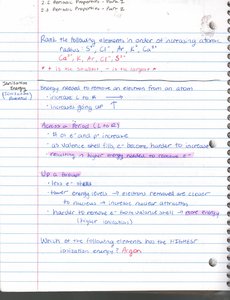 2.2 Periodic Properties - Part 1
2.3 Periodic Properties - Part 2
Rank the following elements in order of increasing atomic
radius: S²⁻, Cl⁻, Ar, K⁺, Ca²⁺
Ca²⁺, K⁺, Ar, Cl⁻, S²⁻
* + is the smallest, - is the largest *
Ionization
Energy
Energy needed to remove an electron from an atom
• increase L to R →
• increases going up ↑
Across a Period (L to R)
• # of e⁻ and p⁺ increase
• as valence shell fills, e⁻ become harder to increase
• resulting in higher energy needed to remove e⁻
Up a Group
• less e⁻ shells
• lower energy levels → electrons removed are closer
to nucleus → increase nuclear attraction
• harder to remove e⁻ from valence shell → more energy
(higher ionization)
Which of the following elements has the HIGHEST
ionization energy? Argon